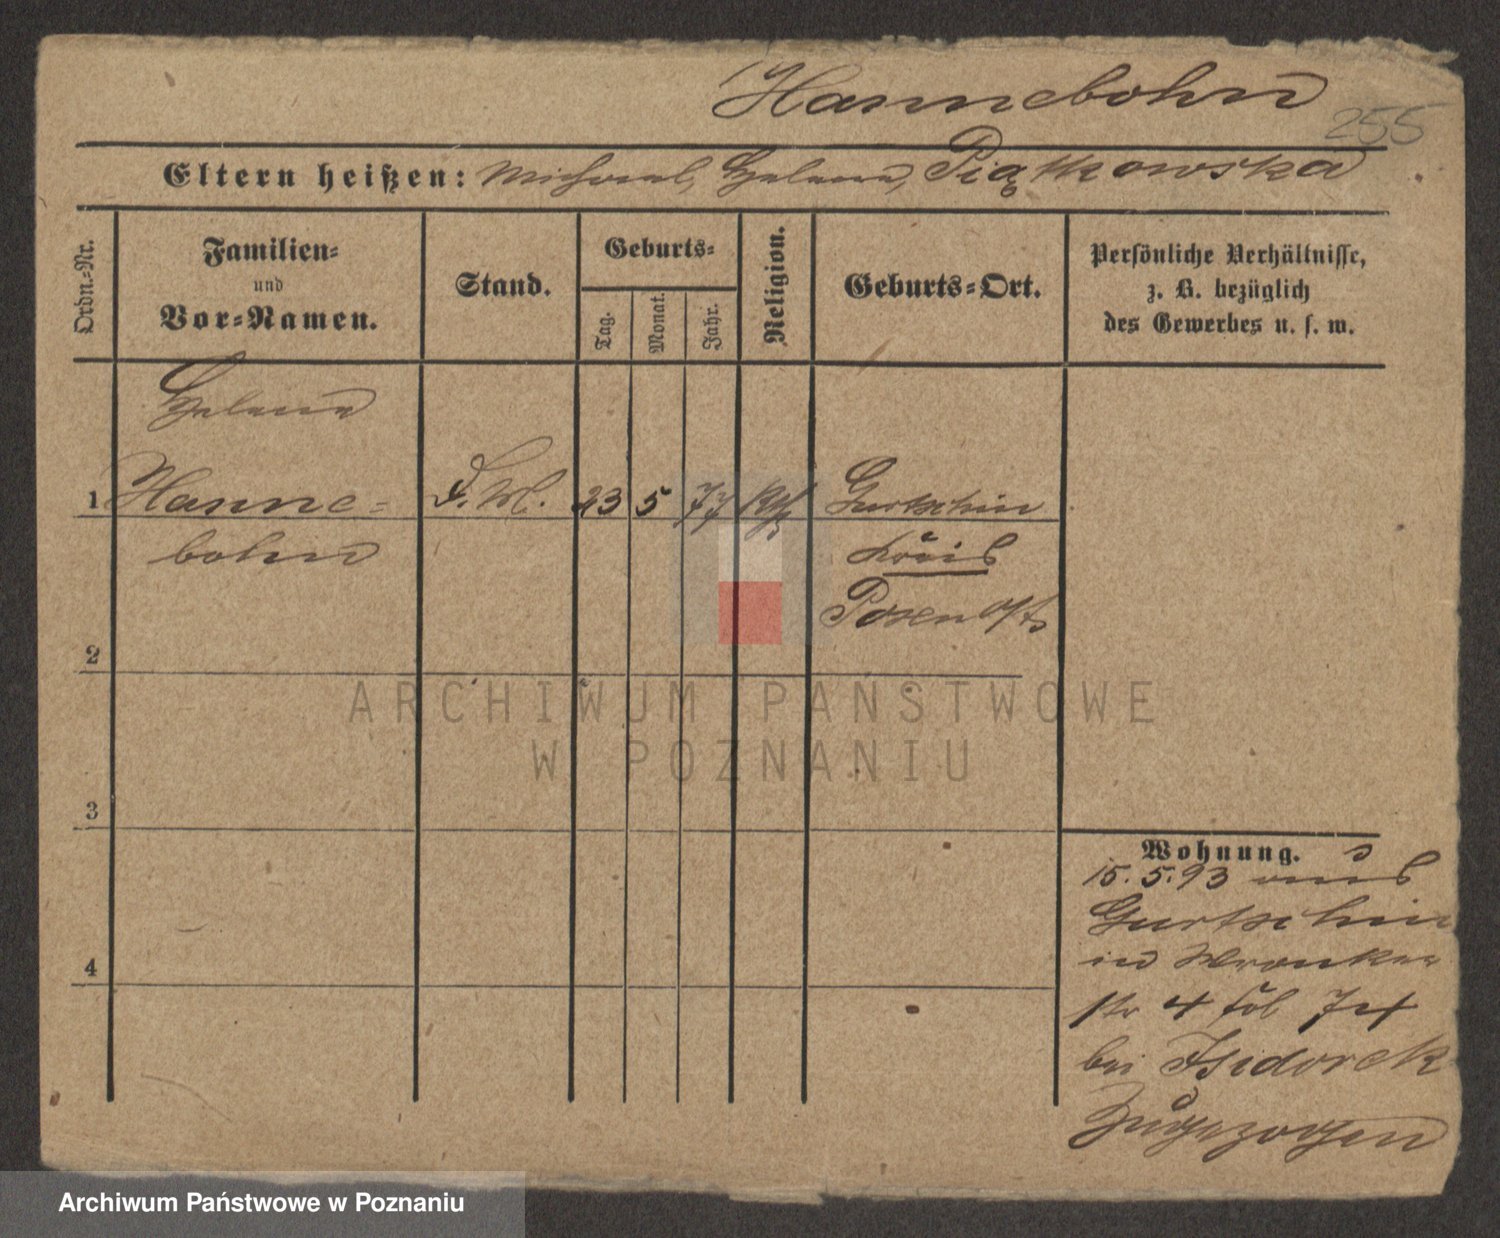 Hannebohn
255
Eltern heißen: Michael, Helena, Piątkowska
Ordn.-Nr.
Familien-
und
Vor-Namen.
Stand.
Geburts-
Tag.
Monat.
Jahr.
Religion.
Geburts-Ort.
Persönliche Verhältnisse,
z. B. bezüglich
des Gewerbes u. s. w.
Helena
1 Hanne- 23 5 77 Kth Gurtschin
bohn Kreis
Posen Ost
2
ARCHIWUM PAŃSTWOWE
W POZNANIU
3
Wohnung.
15.5.93 aus
Gurtschin
in Wronker
str 4
bei Isidorek
Zugezogen
4
Archiwum Państwowe w Poznaniu